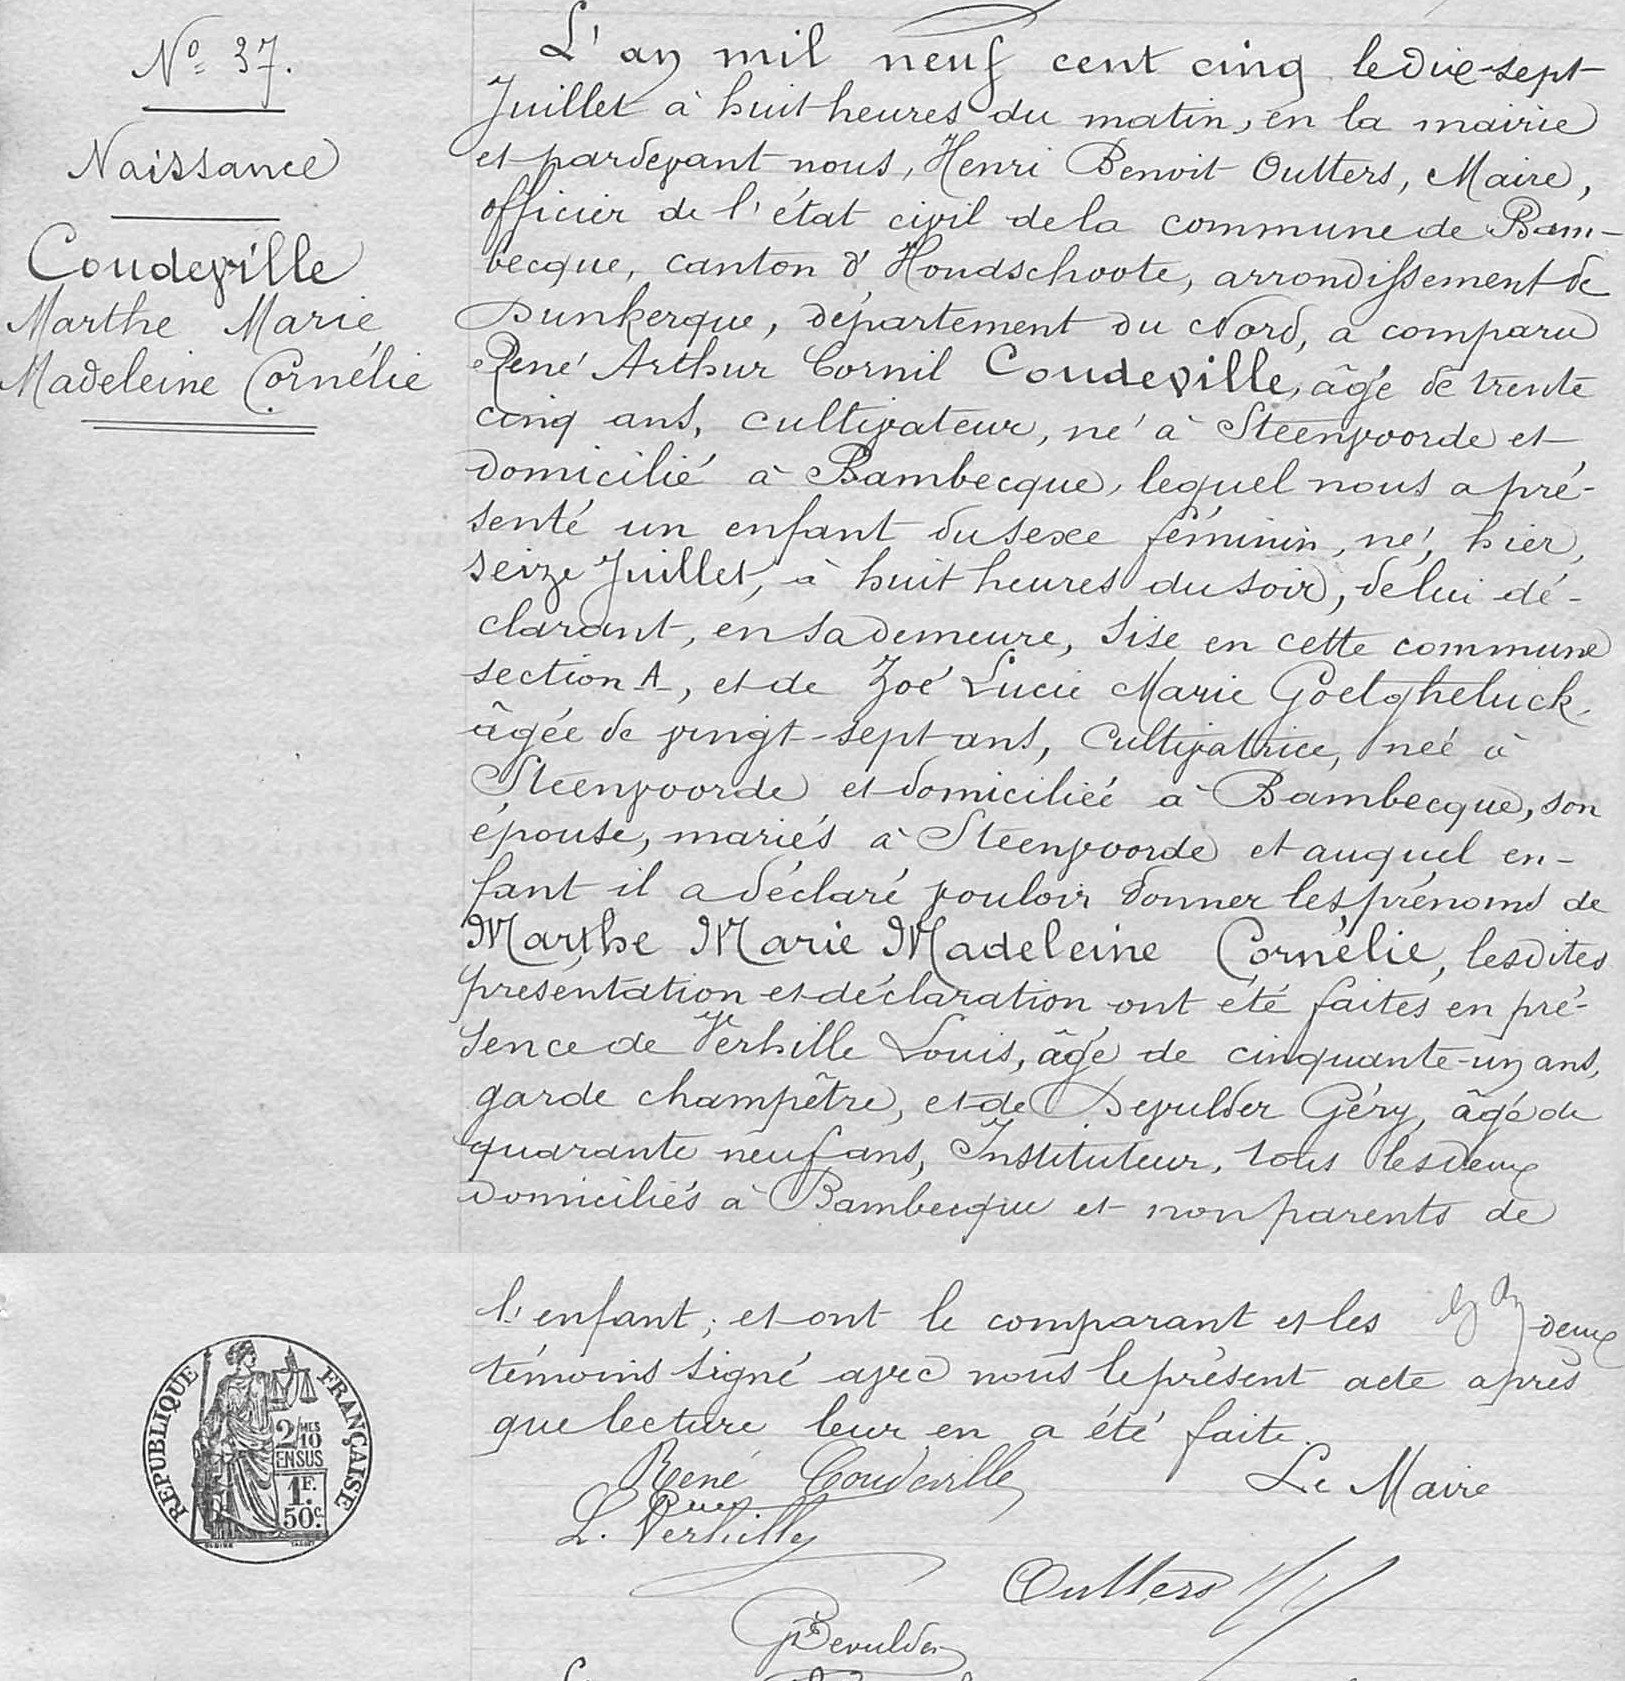 Nº 37.
Naissance
Coudeville
Marthe Marie
Madeleine Cornélie
L'an mil neuf cent cinq le dix-sept
Juillet à huit heures du matin, en la mairie
et pardevant nous, Henri Benoit Outters, Maire,
officier de l'état civil de la commune de Bam-
becque, canton d'Hondschoote, arrondissement de
Dunkerque, département du Nord, a comparu
René Arthur Cornil Coudeville, âgé de trente
cinq ans, cultivateur, né à Steenvoorde et
domicilié à Bambecque, lequel nous a pré-
senté un enfant du sexe féminin, né, hier,
seize Juillet, à huit heures du soir, de lui dé-
clarant, en sa demeure, sise en cette commune
section A, et de Zoé Lucie Marie Goelgheluck
âgée de vingt-sept ans, cultivatrice, née à
Steenvoorde et domiciliée à Bambecque, son
épouse, mariés à Steenvoorde et auquel en-
fant il a déclaré vouloir donner les prénoms de
Marthe Marie Madeleine Cornélie, lesdites
présentation et déclaration ont été faites en pré-
sence de Verhille Louis, âgé de cinquante-un ans,
garde champêtre, et de Devulder Géry, âgé de
quarante neuf ans, Instituteur, tous les deux
domiciliés à Bambecque et non parents de
l'enfant; et ont le comparant et les deux
témoins signé avec nous le présent acte après
que lecture leur en a été faite.
René Coudeville
Le Maire
L. Verhille
Outters
Devulder
RÉPUBLIQUE FRANÇAISE
2/10 MES
EN SUS
1F.
50c.